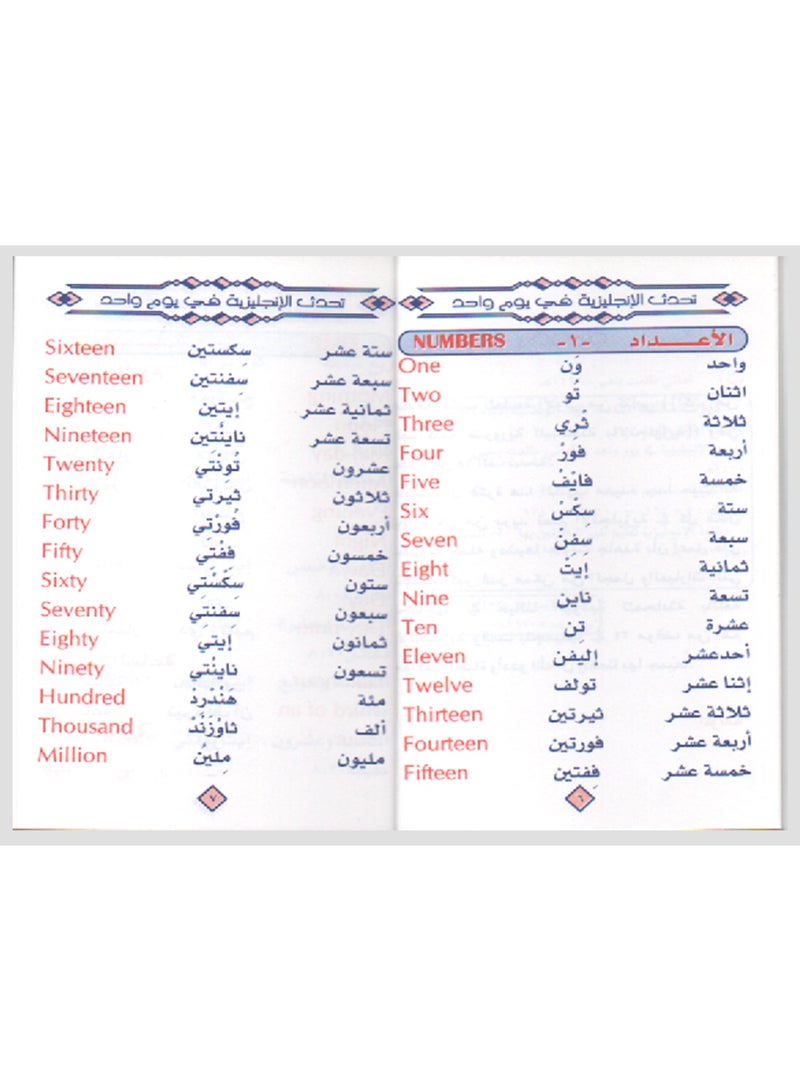 تحدث الإنجليزية في يوم واحد
الأعـــداد -١- NUMBERS
واحد وَن One
اثنان تُو Two
ثلاثة ثري Three
أربعة فَورْ Four
خمسة فايْفْ Five
ستة سِكْسْ Six
سبعة سِفنْ Seven
ثمانية إيتْ Eight
تسعة ناين Nine
عشرة تِن Ten
أحدعشر إليفن Eleven
إثنا عشر تولف Twelve
ثلاثة عشر ثيرتين Thirteen
أربعة عشر فورتين Fourteen
خمسة عشر فِفتين Fifteen
٦
تحدث الإنجليزية في يوم واحد
ستة عشر سِكستين Sixteen
سبعة عشر سفنتين Seventeen
ثمانية عشر إيتين Eighteen
تسعة عشر نايْنْتين Nineteen
عشرون تُونْتَي Twenty
ثلاثون ثيرتي Thirty
أربعون فورْتي Forty
خمسون فِفْتي Fifty
ستون سكْسْتَي Sixty
سبعون سِفنْتي Seventy
ثمانون إيتي Eighty
تسعون نايْنْتي Ninety
مئة هَنْدْرِد Hundred
ألف ثاوْزَنْد Thousand
مليون مِليَن Million
٧